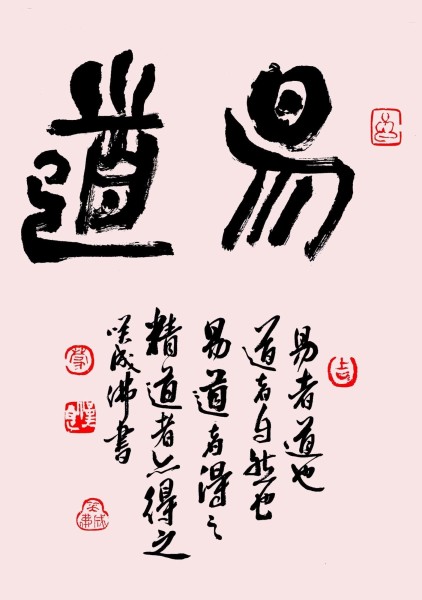 易道
易者道也
道者自然也
易道者得之
精道者亦得之
笑成佛書